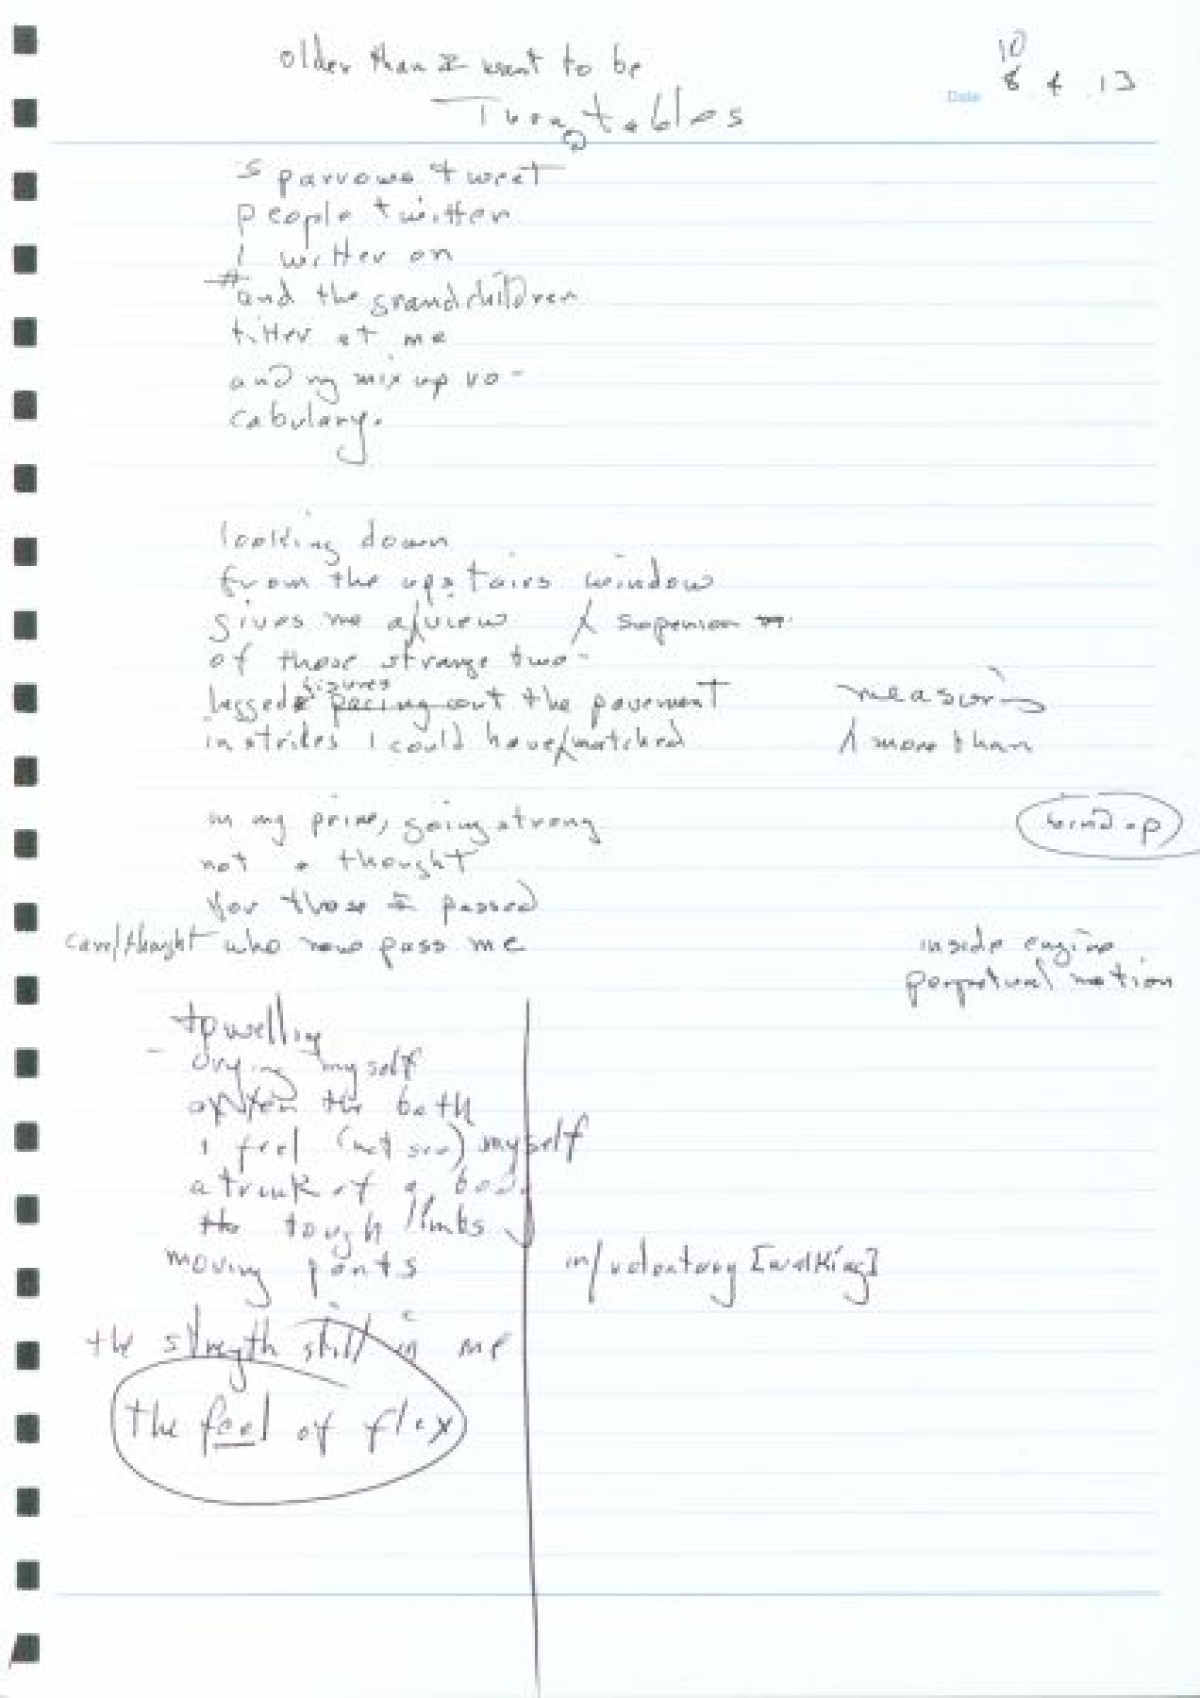 older than I want to be
10
Date 8 4 13
Turn tables
sparrows tweet
people twitter
I witter on
and the grandchildren
titter at me
and my mix up vo-
cabulary.
looking down
from the upstairs window
gives me a/view / superior
of those strange two-
legged figures pacing out the pavement measuring
in strides I could have/matched / more than
in my prime, going strong
wind-up
not a thought
for those I passed
care/thought who now pass me
inside engine
perpetual motion
towelling
drying myself
after the bath
I feel (not see) myself
a trunk of a body
the tough limbs
moving parts in/voluntary [walking]
the strength still in me
the feel of flex